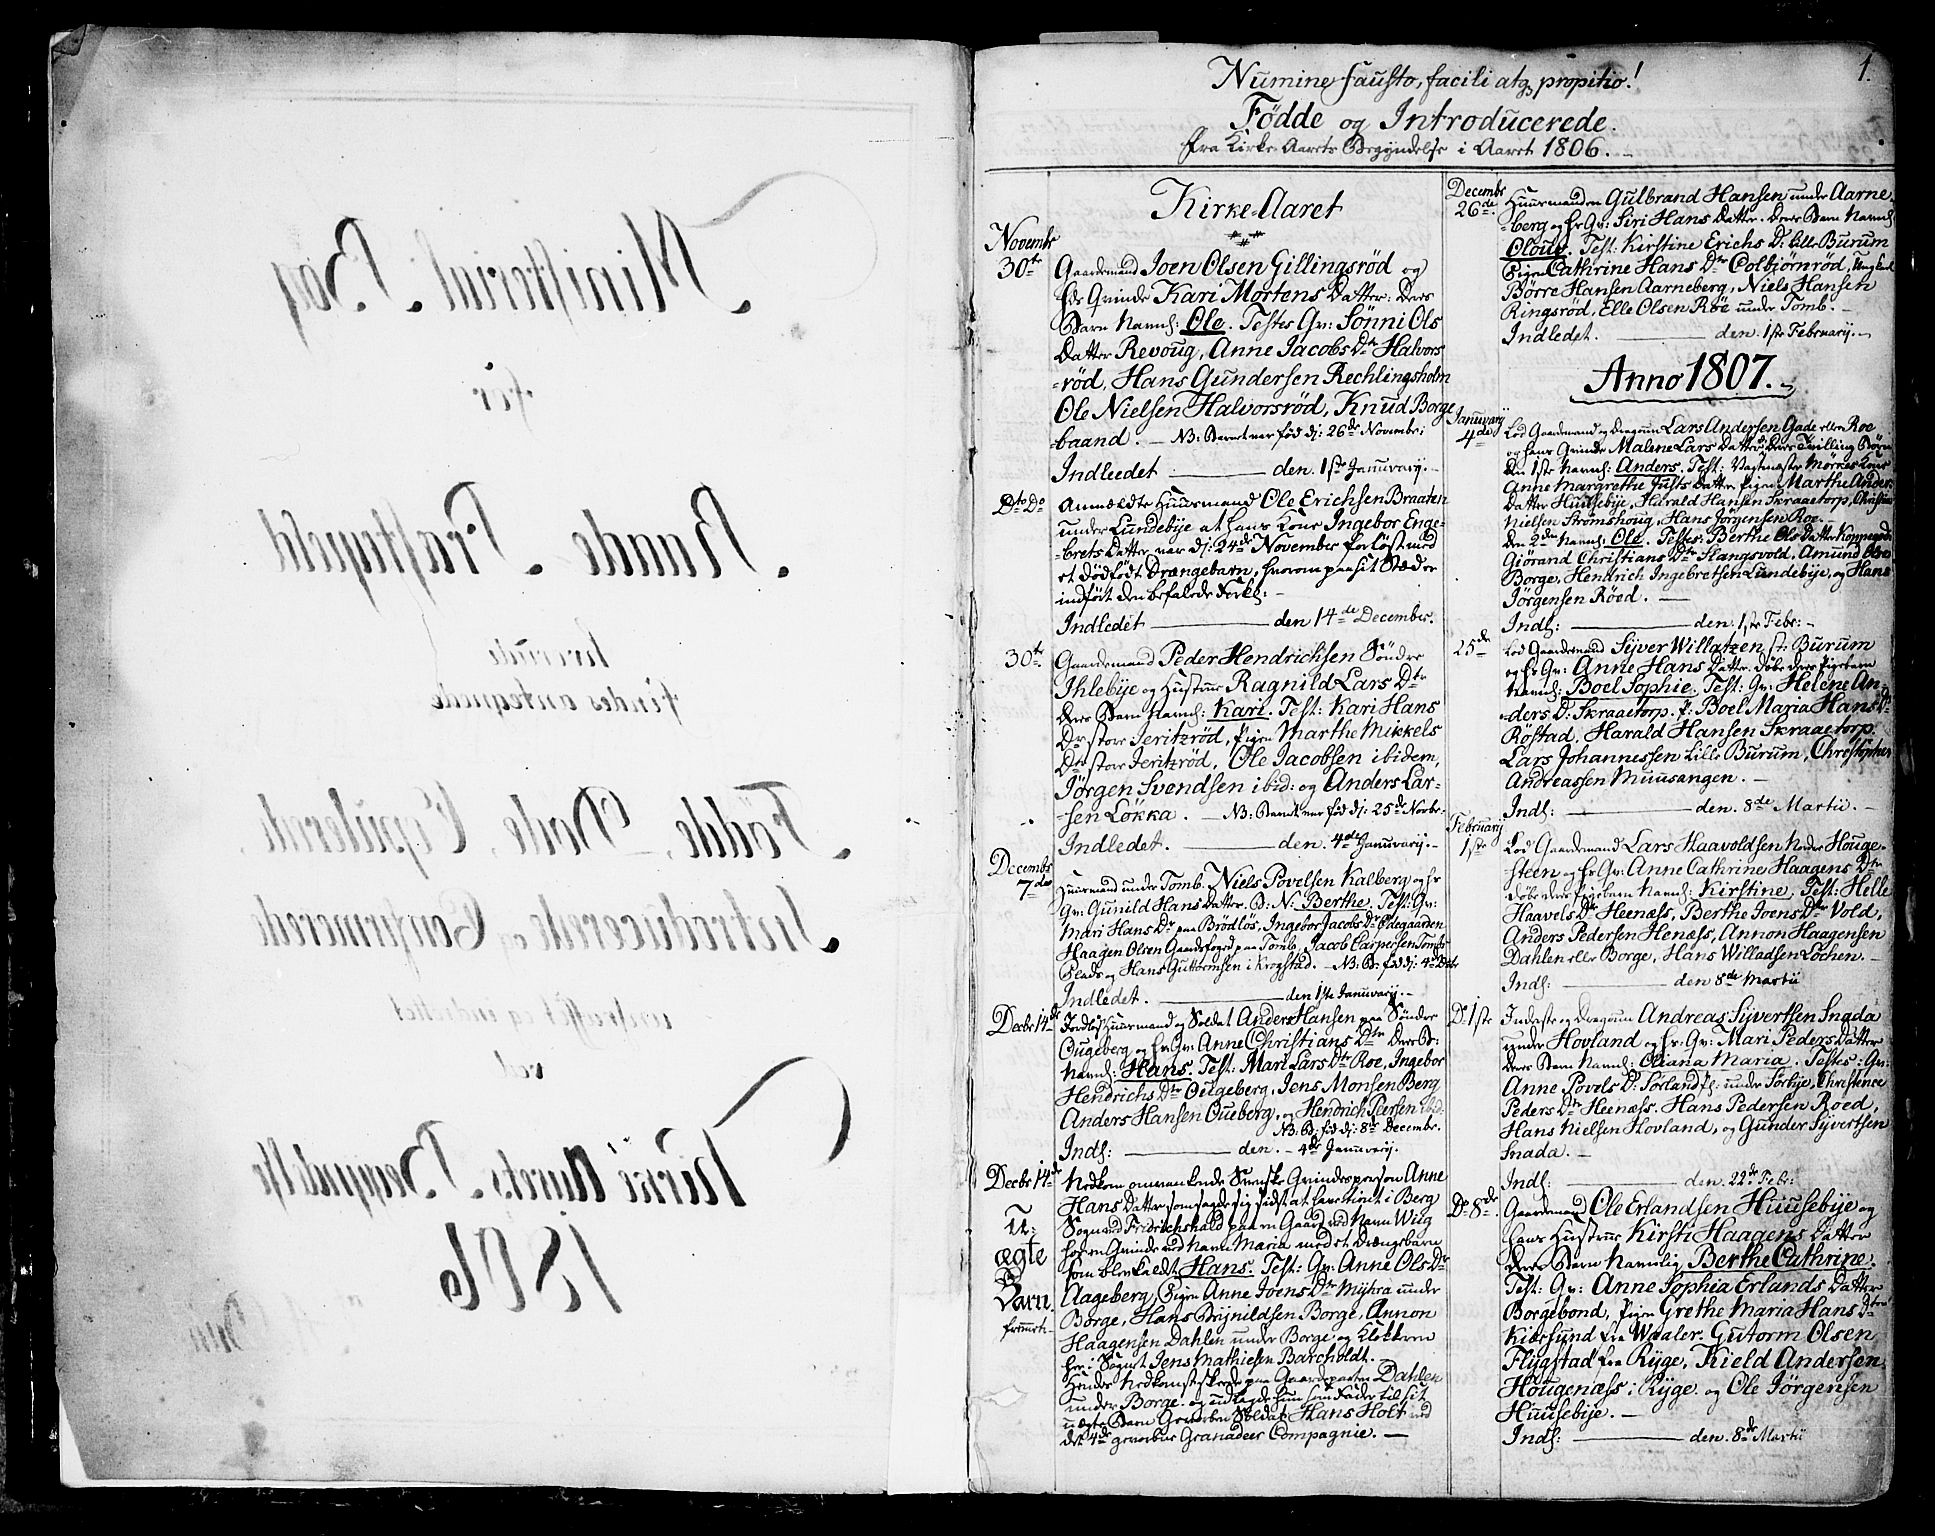 Ministerial Bog
for
Raade Præstegield
hvorude
findes antegnede
Fødde, Døde, Copulerede
Introducerede og Confirmerede
ved
Kirke Aarets Begyndelse
1806
1.
Numine fausto, facili atq, propitio!
Fødde og Introducerede.
fra Kirke-Aarets Begyndelse i Aaret 1806.
Kirke-Aaret
Novembr
30te Gaardemand Joen Olsen Gillingsrød og
Hs Qvinde Kari Mortens Datter: deres
Barn Navnl: Ole. Testes Qv: Sønni Ols
Datter Revoug, Anne Jacobs Dr Halvors
-rød, Hans Gundersen Rechlingsholm
Ole Nielsen Halvorsrød, Knud Borge
-baand. - NB: Barnet var fød d: 26de Novembr:
Indleedet den. 1ste Januvarij.-
Dto Do Anmældte Huusmand Ole Erichsen Braaten
under Lundebye at hans Kone Ingebor Enge-
-brets Datter var d: 24de November forløst med
et dødfødt Drængebarn, hvorom paa sit Stæd er
indført den befalede Forkl: -
Indledet den 14de Decembr.
30te Gaardemand Peder Hendrichsen Søndre
Ihlebye og Hustrue Ragnild Lars Dtr
deres Barn Navnl: Kari. Test: Kari Hans
Dr store Jeritzrød, Pigen Marthe Mikkels
Dr store Jeritzrød, Ole Jacobsen ibidem,
Jørgen Svendsen ibid: og Anders Lar-
-sen Løkka. - NB: Barnet var fød d: 25de Novbr.
Indledet. den. 4de Januvarij.-
Decembr
7de Huusmand under Tomb. Niels Povelsen Kalberg og Hs
Qv: Gunild Hans Datter. B: N: Berthe. Test: Qv:
Mari Hans Dr paa Brødløs, Ingebor Jacobs Dr Ødegaarden
Haagen Olsen Gaardsfoged paa Tomb, Jacob Caspersen Tombs
Plads og Hans Guttormsen i Krogstad. - NB: B: fød d: 4de Dbr
Indledet. den 1ste Januvarij.-
Decbr 14de Huusmand og Soldat Anders Hansen paa Søndre
Ougeberg og Hs Qv: Anne Christians Dtr deres B:
Navnl: Hans. Test: Mari Lars Dtr Roe, Ingebor
Hendrichs Dtr Ougeberg, Jens Monsen Berg
Anders Hansen Oueberg, og Hendrich Persen ibid.
NB: B: fød d: 8de Decembr.
Indl: den. 4de Januvarij.
Decbr 14de Nedkom omvankende Svenske Qvindesperson Anne
U:
ægte
Barn.
Hans Datter som sagde sig sidst at have tient i Berg
Sogn ved Fridrichshald paa en Gaard ved Navn Wiig
hos en Qvinde ved Navn Maria med et Drængebarn
som blev kaldet Hans. Test: Qv: Anne Ols Dr
Aageberg, Pigen Anne Joens Dtr Myhra under
Borge, Hans Brynildsen Borge, Annon
Haagensen Dahlen under Borge og Klokkeren
her i Sognet Jens Mathiesen Barcholdt.
Hendes Nedkomst skeede paa Gaardeparten Dahlen
under Borge. og udlagde hun som Fader til sit
uægte Barn Gevorben Soldat Hans Holt ved
det 4de gevorbne Granadeer Compagnie. -
Decembr
26de. Huusmanden Gulbrand Hansen under Aarne-
-berg og Hs Qv: Siri Hans Datter. deres Barn Navnl:
Oloug. Test: Kirstine Erichs D: lille Burum
Pigen Cathrine Hans Dtr Colbjørnrød, Ungkarl
Børre Hansen Aarneberg, Niels Hansen
Ringsrød, Elle Olsen Røe under Tomb. -
Indledet. den. 1ste Februarij.-
Anno 1807.
Januvarij
4de Lod Gaardmand og Dragoun Lars Andersen Gade eller Roe
og hans Qvinde Malene Lars Datter deres Tvilling Børn
den 1ste Navnl: Anders. Test: Vagtmester Mørkes Kone
Anne Margrethe Justs Datter Pigen Marthe Anders
Datter Huusebye, Harald Hansen Skraaetorp, Christian
Nielsen Strømshoug, Hans Jørgensen Roe.
den 2den Navnl: Ole. Testes: Berthe Ols Datter
Giørand Christians Dtr Hangsvold, Amund Olsen
Borge, Hendrich Ingebretsen Lundebye, og Hans
Jørgensen Røed. -
Indl: den. 1ste Febr: -
25de Lod Gaardemand Syver Willatzen st: Burum
og Hs Qv: Anne Hans Datter. døbe deres Pigebarn
Navnl: Boel Sophie. Test: Qv: Helene An-
-ders D: Skraaetorp. P: Boel Maria Hans Dr
Røstad. Harald Hansen Skraaetorp.
Lars Johannessen Lille Burum, Christopher
Andreassen Muusangen. -
Indl: den. 8de Martii. -
Februarij
1ste Lod Gaardemand Lars Haavoldsen Nedre Houge-
-steen og Hs Qv: Anne Cathrine Haagens Dtr
døbe deres Pigebarn Navnl: Kirstine, Test: Helle
Haavels Dr Heenæss, Berthe Joens Dtr Vold,
Anders Pedersen Henæss, Annon Haagensen
Dahlen elle Borge, Hans Willadsen Lochen. -
Indl: den 8de Martii
D: 1ste Inderste og Dragoun Andreas Syvertsen Snada
under Hovland og Hs: Qv: Mari Peders Datter
deres Barn Navnl: Oliana Maria. Testes: Qv:
Anne Povels D: Sørland Pl: under Sørbye, Christence
Peders Dtr Heenæss. Hans Pedersen Røed,
Hans Nielsen Hovland, og Gunder Syvertsen
Snada. -
Indl: den. 22de Febr:
D: 8de. Gaardemand Ole Erlandsen Huusebye og
hans Hustrue Kirsti Haagens Datter
deres Barn Navnlig Berthe Cathrine.
Test: Qv: Anne Sophia Erlands Datter
Borgebond, Pigen Grethe Maria Hans Dtr
Kiersund fra Waaler. Gutorm Olsen
Flygstad fra Rygge, Kield Andersen
Hougenæss i Rygge og Ole Jørgensen
Huusebye. -
Indl: den. 8de Martii